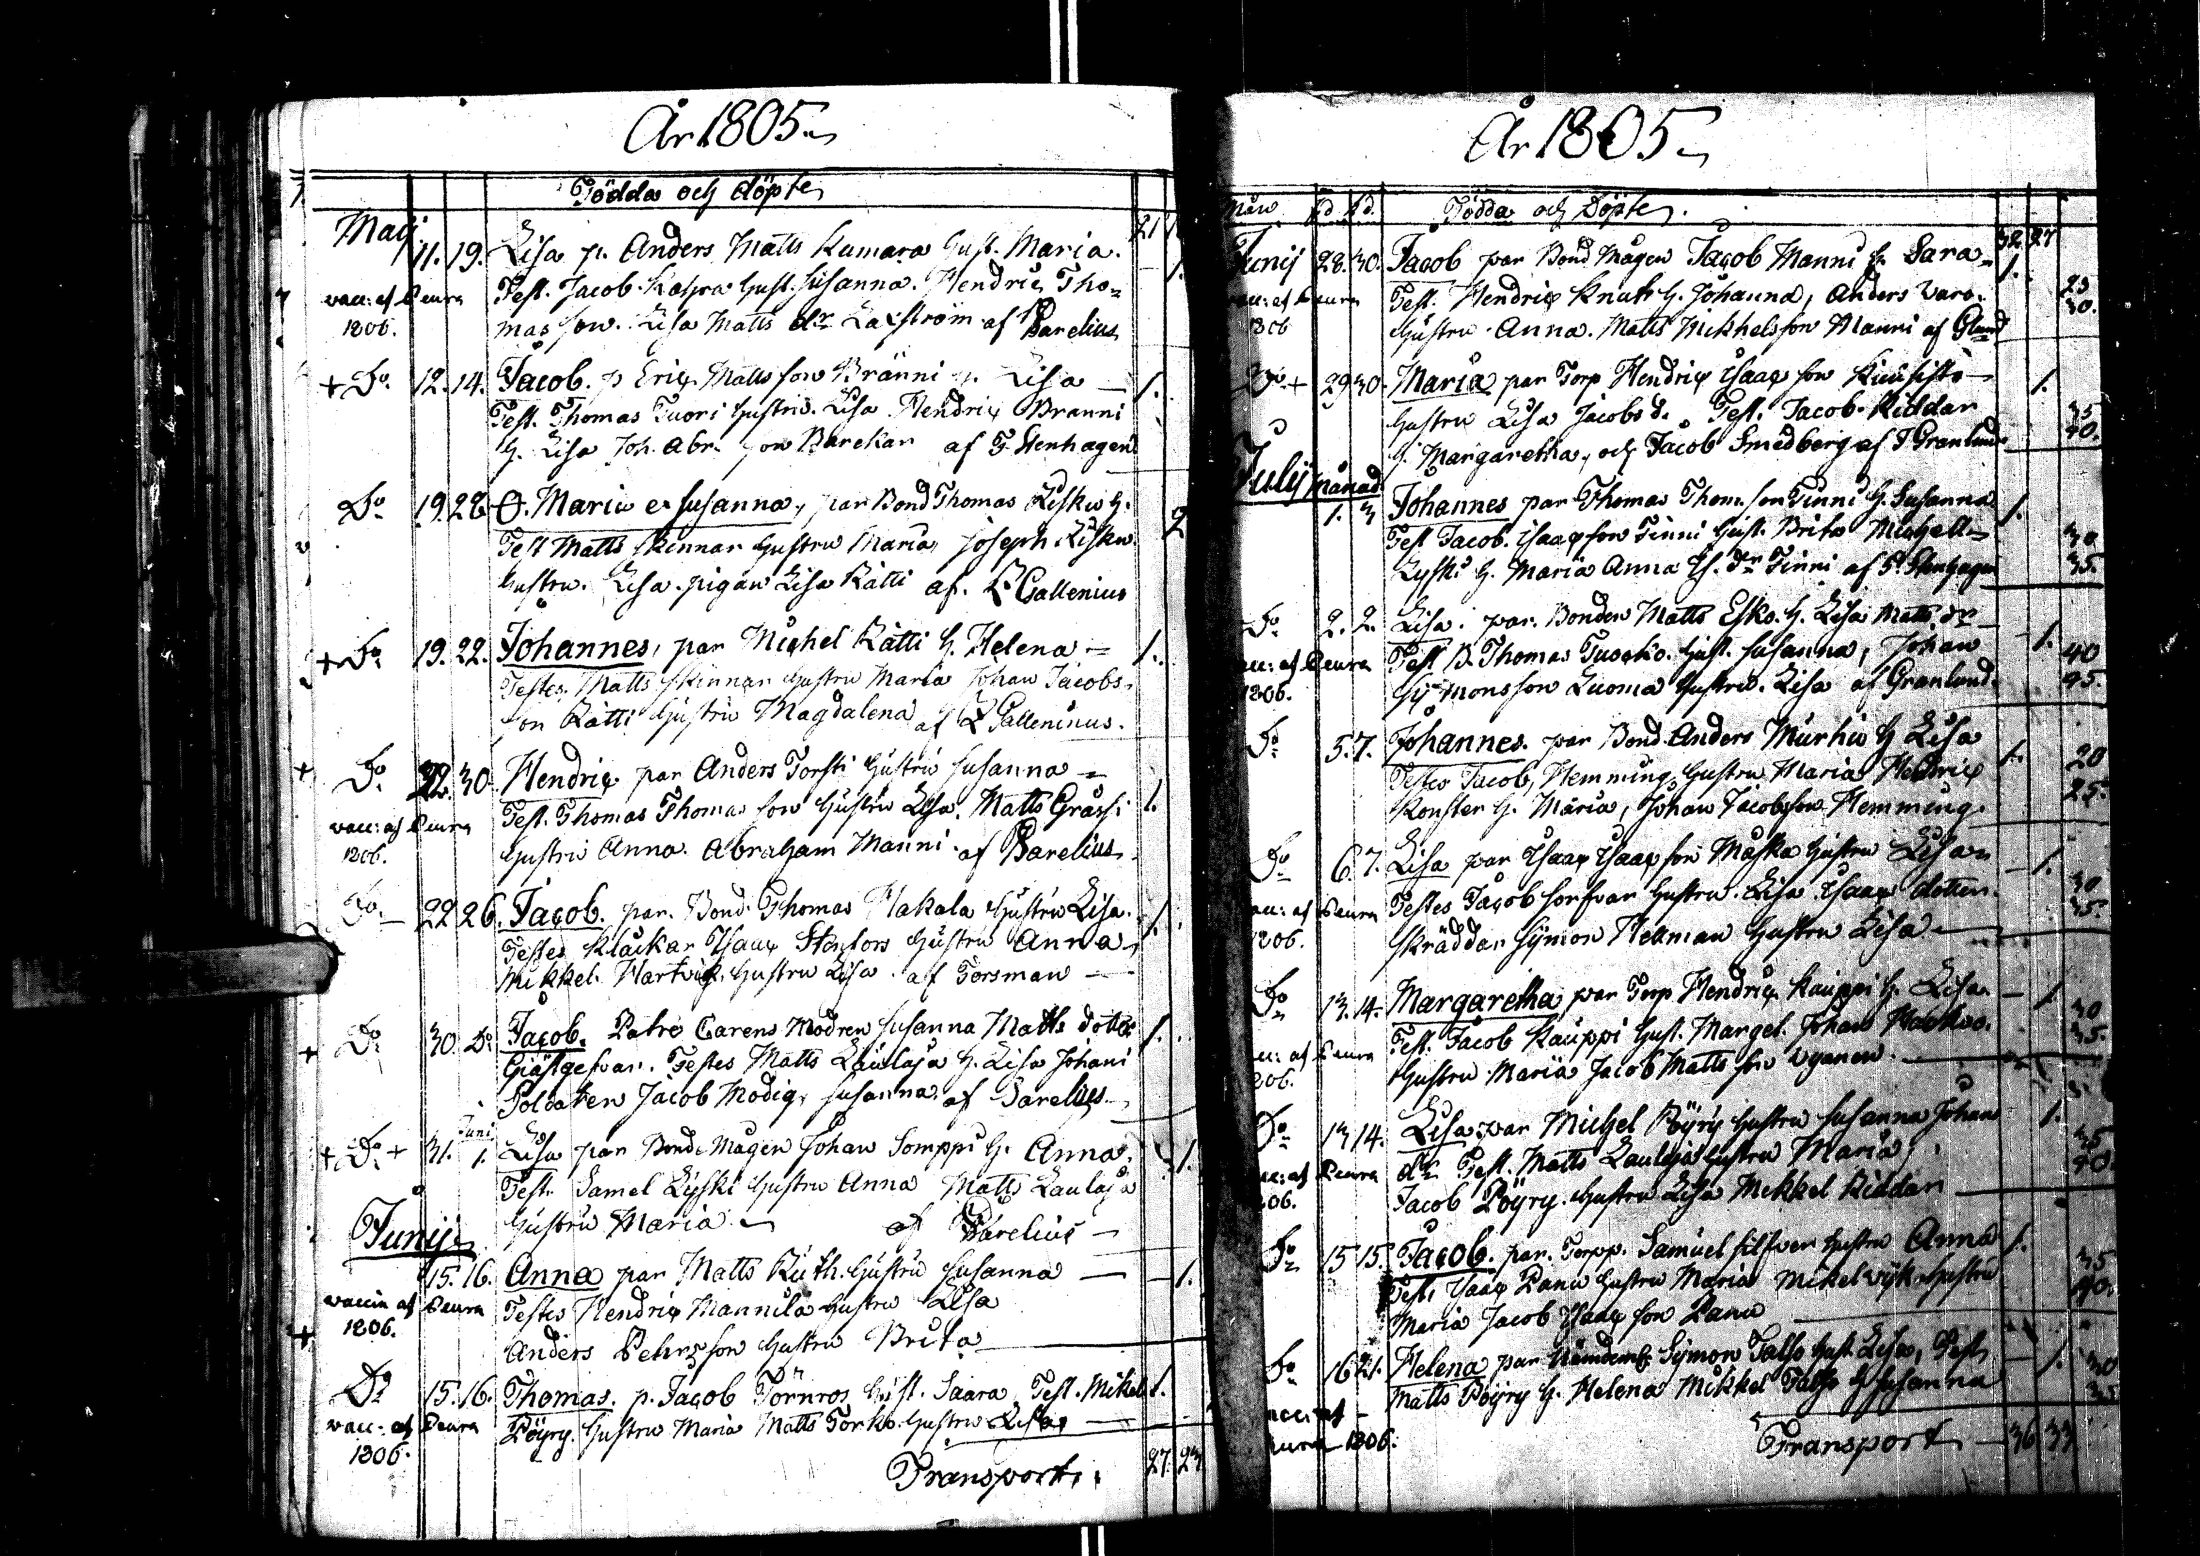 År 1805
Födda och döpte
Maij 21
11. 19. Lisa p. Anders Matts Kamara Hust. Maria. 1.
Test. Jacob Katzra Hust. Susanna. Hendric Tho=
vac: af Peura
1806.
mas son. Lisa Matts dr Laxström af Barelius
+ Do 12. 14. Jacob. p Eric Matts son Bränni h. Lisa 1.
Test. Thomas Tuori hustru. Lisa Hendric Bränni
h. Lisa Joh. Abr. son Barekar af F. Stenhagen
Do 19. 28 O. Maria et Susanna, par Bond Thomas Liskii h. 2
Test Matts Skinnar hustru Maria, Joseph Liskii
hustru. Lisa. pigan Lisa Rätti af. L Gallenius
+ Do 19. 22. Johannes, par Michel Rätti h. Helena 1.
Testes. Matts Skinnar hustru Maria Johan Jacobs-
son Rätti hustru Magdalena af L Galleninus.
+ Do 22. 30 Hendric par Anders Torsti hustru Susanna 1.
Test. Thomas Thomas son hustru Lisa. Matts Gråsti
vac: af Peura
1806.
hustru Anna. Abraham Manni af Barelius
Do 22 26. Jacob. par. Bond. Thomas Hakala hustru Lisa. 1.
Testes Klåckar Isaac Stenfors hustru Anna,
Mikkel Hartvick hustru Lisa af Forsman
+ Do 30 Do Jacob. Patre Carens Modren Susanna Matts dotter 1.
Giästgefvar. Testes Matts Laulaja h. Lisa Johani
Soldaten Jacob Modig, Susanna af Barelius
Juni
+ Do + 31. 1. Lisa par Bond. Magen Johan Somppi h. Anna. 1.
Test. Samel Lyski hustru Anna Matts Laulaja
hustru Maria af Barelius
Junij
15. 16. Anna par Matts Kuth. hustru Susanna 1.
vaccin af Peura
1806.
Testes Hendric Mannila hustru Lisa
Anders Pehrsson hustru Brita
Do 15. 16. Thomas. p. Jacob Törnros hust. Saara Test. Mikel 1.
vac: af Peura
1806.
Pöyry hustru Maria Matts Torkko hustru Lisa
Transport. 27. 23
År 1805
Mån fd. dd. Födda och Döpte. 32. 27
Junij 28. 30. Jacob par Bond Mågen Jacob Manni h. Sara 1.
vac: af Peura
1806
Test. Hendric Knuts h. Johanna, Anders Varo. 25
30.
hustru Anna. Matts Mickhelsson Manni af Glund
Do + 29 30. Maria par Torp Hendric Isaac son Kiiisistö 1.
hustru Lisa Jacobs d. Test. Jacob Riddar 35
40.
h. Margaretha, och Jacob Smedberg af J Granlund
Julij månad.
1. 3 Johannes par Thomas Thom. son Finni h. Susanna 1.
Test Jacob. Isaac son Finni hust. Brita Michell 30
35.
Lyski h. Maria Anna Is. dr Finni af F. Stenhagen
Do 2. 2. Lisa. par. Bonden Matts Esko. h. Lisa Matts dr 1.
vac: af Peura
1806.
Test B. Thomas Tuocko. hust. Susanna, Johan 40
45.
Symonsson Luoma hustru. Lisa af Granlund.
Do 5. 7. Johannes. par Bond Anders Murhu h Lisa 1. 20
Testes Jacob, Hemming hustru Maria Hendric 25.
Konster h. Maria, Johan Jacobsson Hemming.
Do 6. 7. Lisa par Isaac Isaac son Maska hustru Lisa 1.
vac: af Peura
1806.
Testes Jacob Sorfvar hustru. Lisa Isaac dotter. 30
35.
Skräddar Symon Hellman hustru Lisa
Do 13. 14. Margaretha par Torp Hendric Kauppi h. Lisa 1. 30
35.
Test. Jacob Kauppi hust. Marget. Johan
hustru Maria Jacob Matts son
Do 13 14. Lisa par Michel Pöyry hustru Susanna Johan 1.
vac: af Peura
1806.
dr Test. Matts Laulaja hustru Maria, 35
40.
Jacob Pöyry. hustru Lisa Mikkel Riddar
Do 15 15. Jacob. par. Torpp. Samuel Silfver hustru Anna 1. 35
40.
Test. Isaac Panu hustru Maria Mikel Wyk hustru
Maria Jacob Isaac son Panu
Do 16 21. Helena par Nämdem. Symon Talso hust Lisa, Test 1. 30
35
Matts Pöyry h. Helena Mikkel Talso h Susanna
vacc: af
Peura 1806.
Transport 36 33